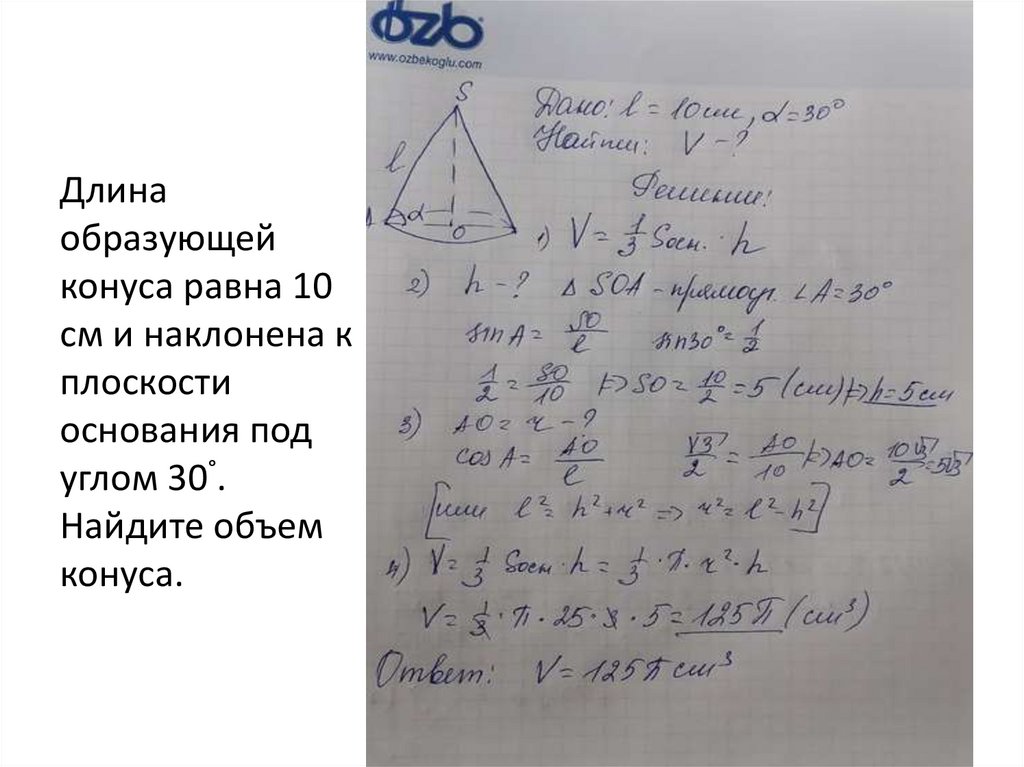 Длина
образующей
конуса равна 10
см и наклонена к
плоскости
основания под
углом 30°.
Найдите объем
конуса.
ozb
www.ozbekoglu.com
S
l
α
O
Дано: l = 10 см, α = 30°
Найти: V - ?
Решение:
1) V = 1/3 Sосн. · h
2) h - ? Δ SOA - прямоуг. ∠A = 30°
sin A = SO/l sin 30° = 1/2
1/2 = SO/10 |=> SO = 10/2 = 5 (см) |=> h = 5 см
3) AO = r - ?
cos A = AO/l √3/2 = AO/10 |=> AO = 10√3/2 = 5√3
[или l² = h² + r² => r² = l² - h²]
4) V = 1/3 Sосн · h = 1/3 · π · r² · h
V = 1/3 · π · 25 · 3 · 5 = 125π (см³)
Ответ: V = 125π см³